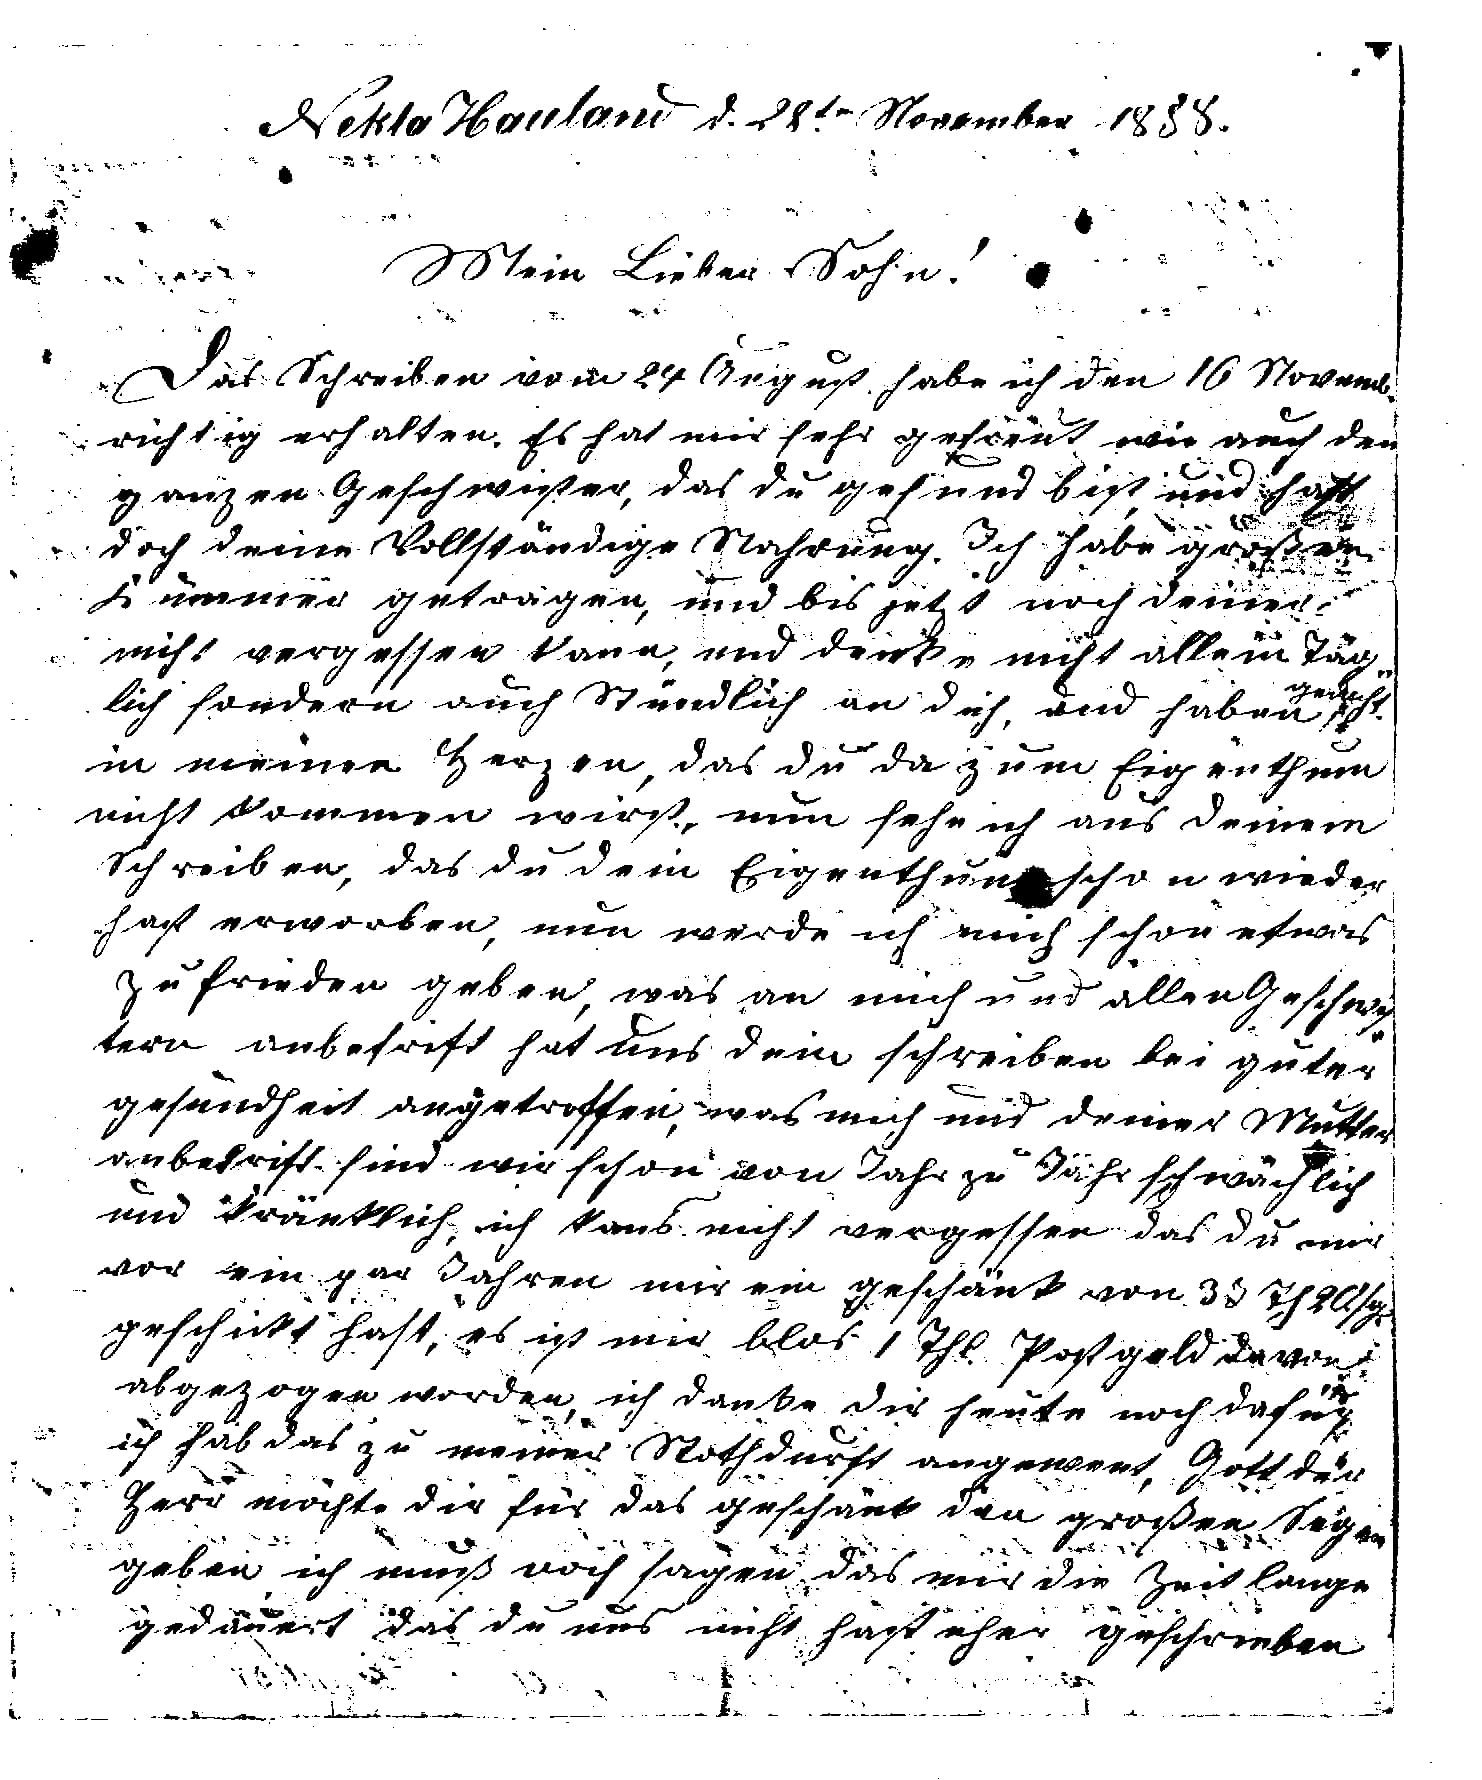 Nekla Hauland d. 28ten November 1858.
Mein Lieber Sohn!
Das Schreiben vom 24 August habe ich den 16 Novemb.
richtig erhalten. Es hat mir sehr gefreut wie auch den
ganzen Geschwister, das du gesund bist, und hast
doch deine Vollständige Nahrung. Ich habe großen
Kummer getragen, und bis jetzt noch deiner
nicht vergessen kann, und denke nicht allein Täg„
lich sondern auch Stündlich an dich, und haben gedacht.
in meinen Herzen, das du da zum Eigenthum
nicht kommen wirst, nun sehe ich aus deinem
Schreiben, das du dein Eigenthum schon wieder
hast erworben, nun werde ich mich schon etwas
zufrieden geben, was an mich und allen Geschwis„
tern anbetrift hat uns dein schreiben bei guter
gesundheit angetroffen, was mich und deiner Mutter
anbetrift sind wir schon von Jahr zu Jahr schwächlich
und kränklich, ich kans nicht vergessen das du mir
vor ein par Jahren mir ein geschänk von 33 Th 20 sgr
geschickt hast, es ist mir blos 1 Thl. Postgeld davon
abgezogen worden, ich danke dir heute noch dafür
ich hab das zu meiner Nothdurft angewent, Gott der
Herr möchte dir für das geschänk den großen Segen
geben ich muß noch sagen das mir die Zeit lange
gedauert das du uns nicht hast eher geschrieben